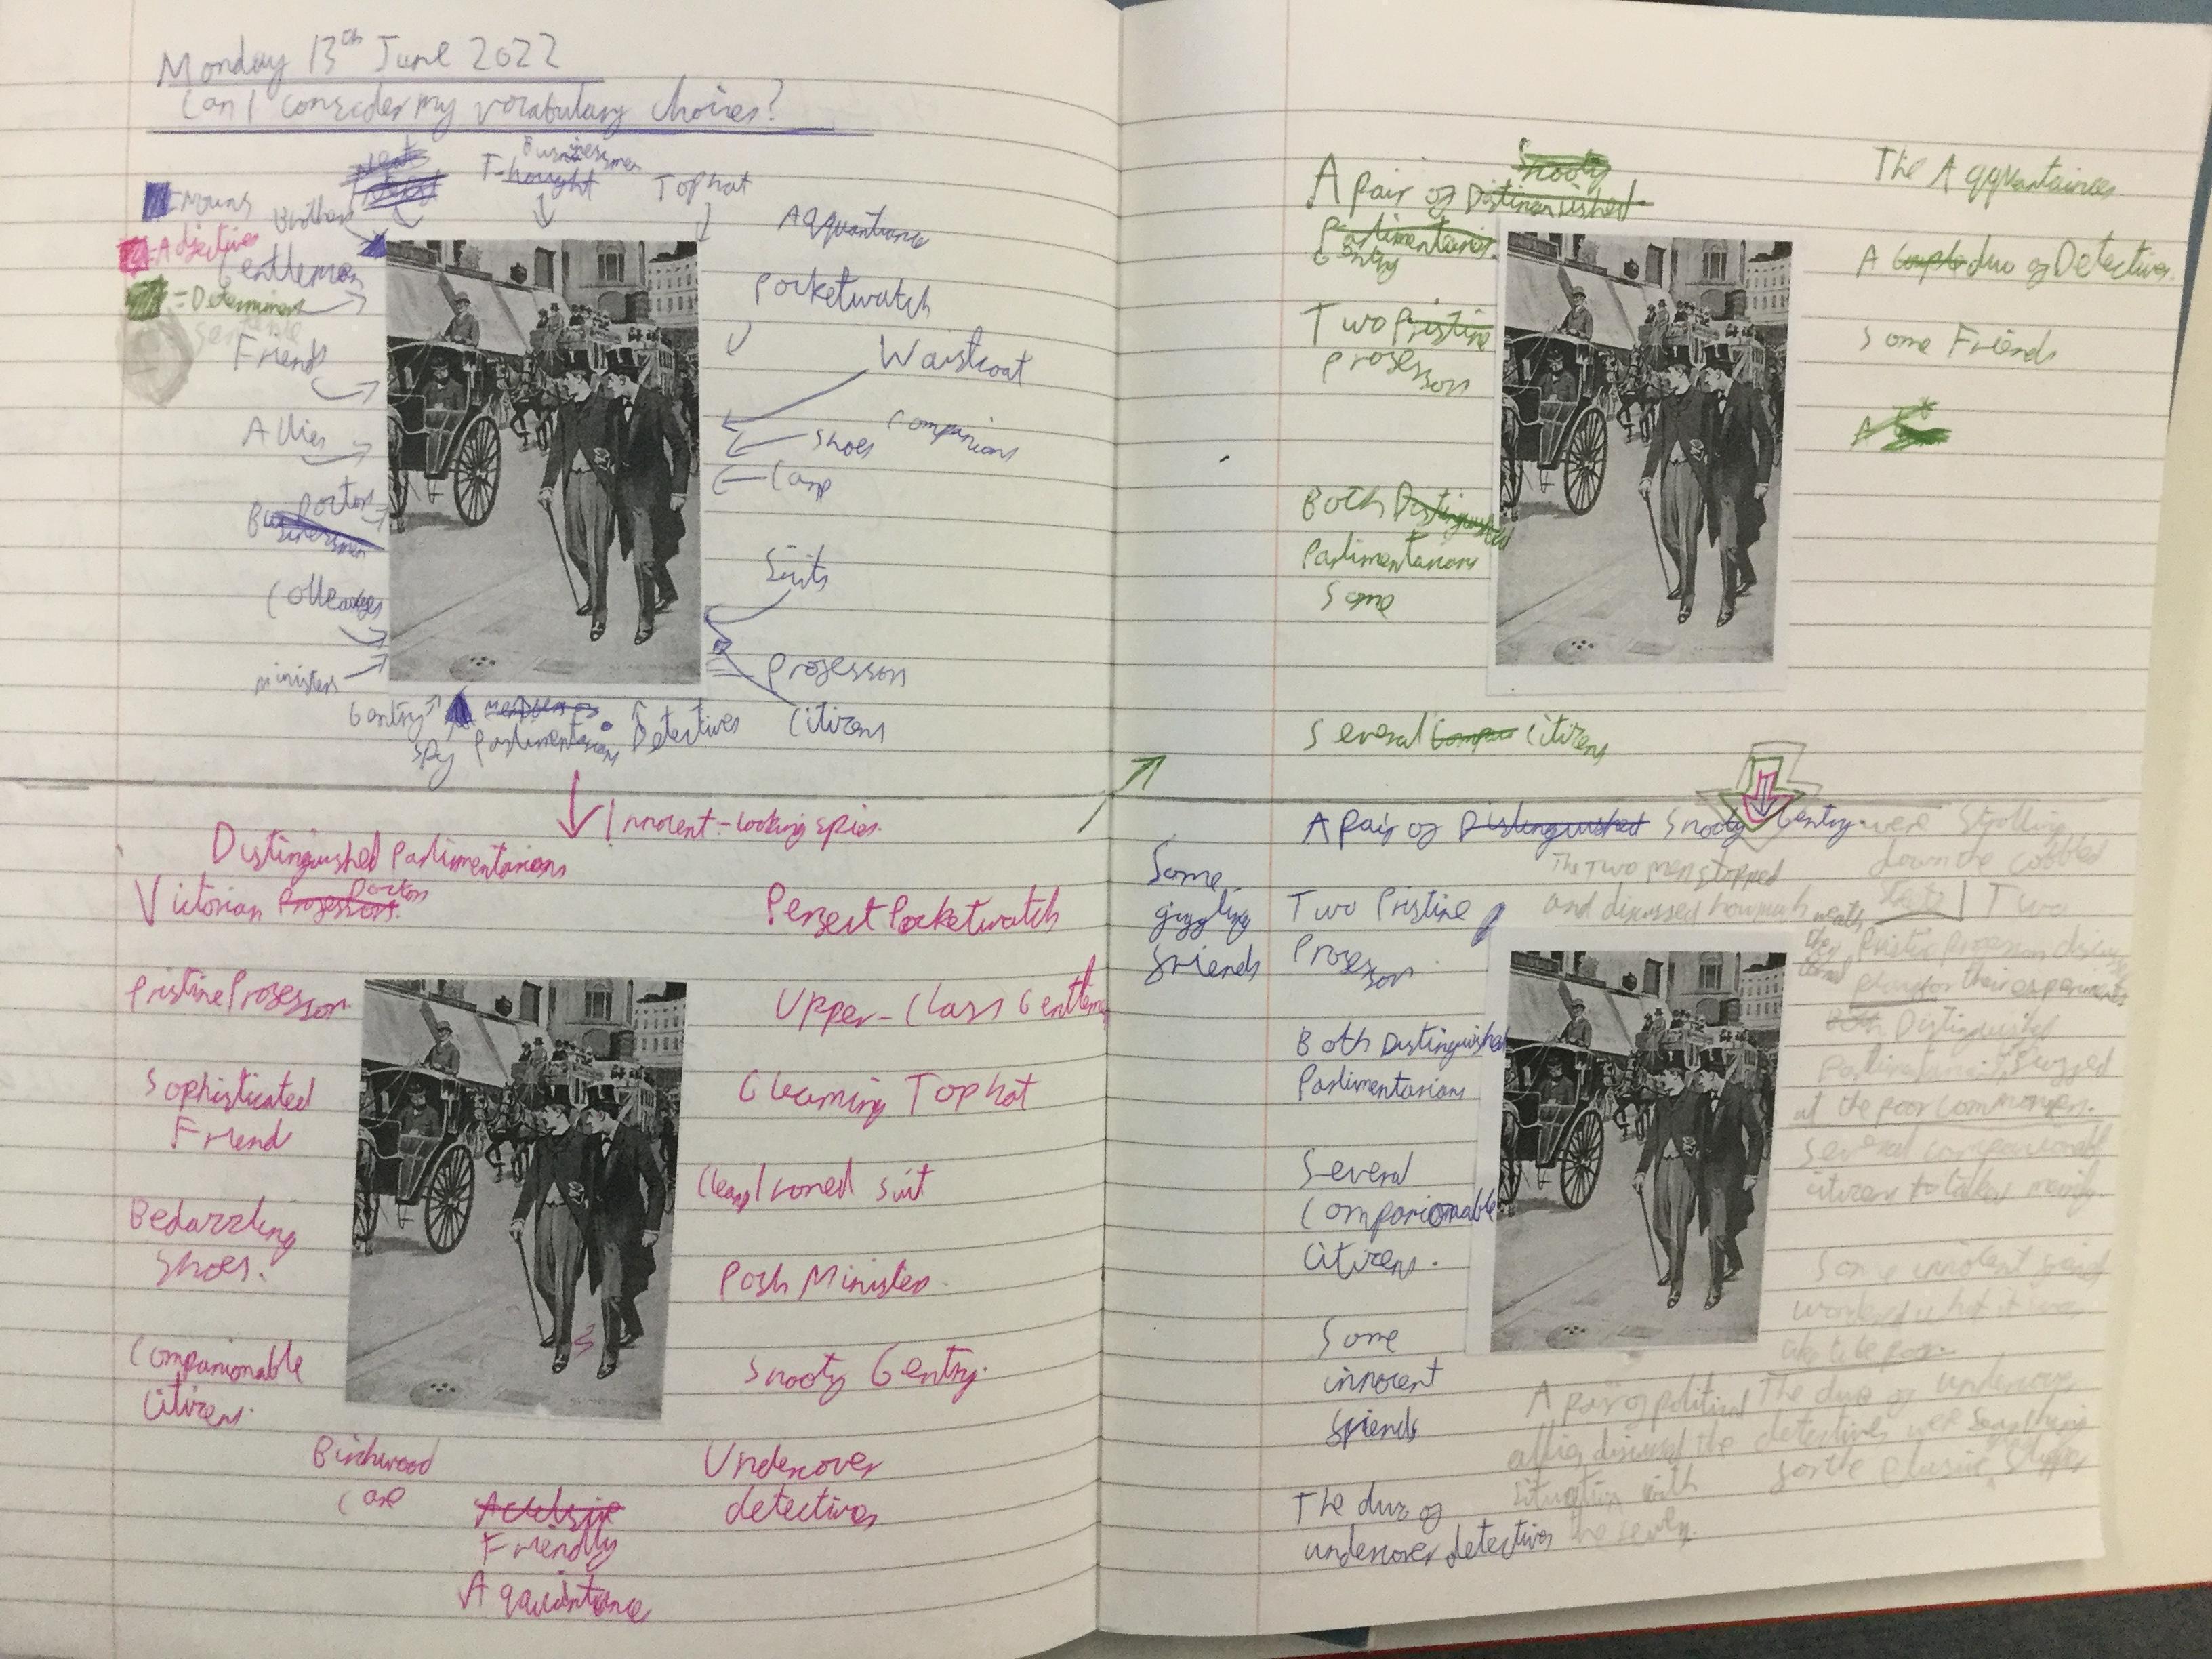 Monday 13th June 2022
Can I consider my vocabulary choices?
Businessmen
Thought
Top hat
= Nouns
Brothers
= Adjectives
Gentlemen
= Determiners
Sentence
Friends
Allies
Doctors
Businessmen
Colleauges
ministers
Gentry
members
spy
Parlimentarians
Detectives
Aqquantance
Pocketwatch
Waistcoat
Companions
Shoes
Cane
Suits
Professors
Citizens
Innocent-looking spies.
Distinguished Parlimentarians
Victorian Professors. Doctors
Perfect Pocketwatch
Pristine Professors.
Upper-Class Gentlemen
Sophisticated
Friend
Gleaming Top hat
Clean, Ironed suit
Bedazzling
Shoes.
Posh Minister.
Companionable
Citizens.
Snooty Gentry.
Birchwood
Cane
Undercover
detectives
Friendly
Aqquintance
Snooty
A pair of Distinguished
Parlimentarians.
Gentry
Two Pristine
professors
Both Distinguished
Parlimentarians
Some
Several Citizens
The Aqquantainces
A Couple duo of Detectives.
Some Friends
A
A pair of Distinguished Snooty Gentry were strolling
down the cobbled
Some
giggling
friends
Two Pristine
Professors.
The Two men stopped
and discussed how much wealth
Two
Pristine Professors
plans for their experiments
Both Distinguished
Parlimentarians
Distinguished
Parlimentarians
at the poor commoners.
Several
Companionable
Citizens.
Several companionable
citizens
Some
innocent
friends
Some innocent friends
wondered what it was
like to be poor.
A pair of political
allies discussed the
situation with
The duo of undercover
detectives were searching
for the elusive
The duo of
undercover detectives